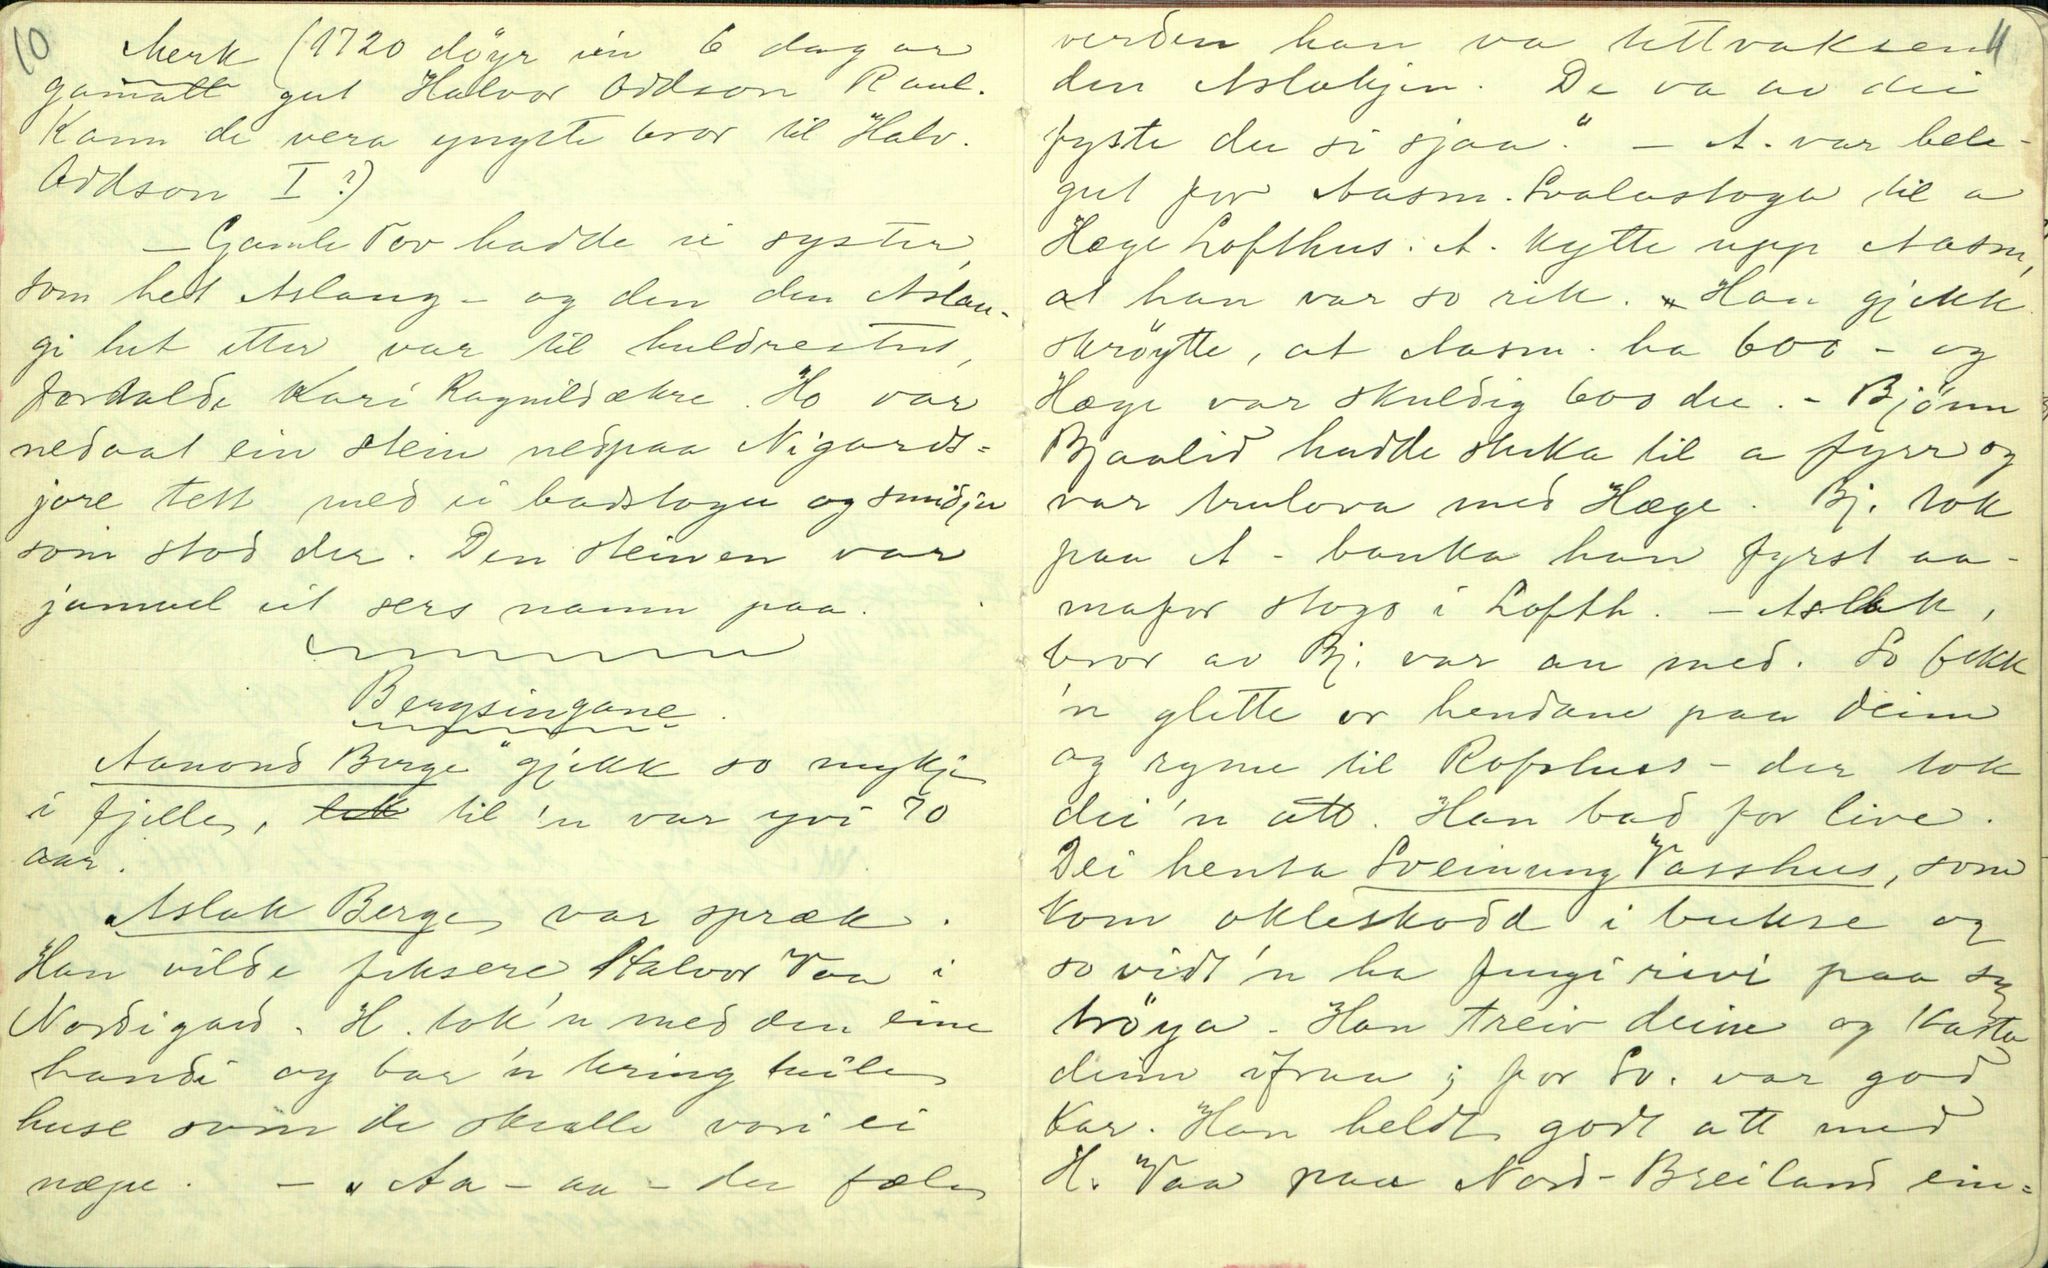 10
Merk (1720 döyr ein 6 dagar
gamall gut Halvor Oddson Raul.
Kann de vera yngste bror til Halv.
Oddson I?)
— Gamle Tov hadde ei syster,
som het Aslaug - og den den Aslau-
gi het etter var til huldrestus,
fortalde Kari Ragnildækre. Ho var
nedaat ein stein nedpaa Nigards-
jore tett med ei badstoga og smidju
som stod der. Den steinen var
jamvel eit sers namn paa.
Bergsingane.
Aanond Berge "gjekk so mykje
i fjelle, til 'n var yvi 70
aar.
Aslak Berge var spræk.
Han vilde fiksere Halvor Vaa i
Nordigard. H. tok'n med den eine
handi og bar 'n kring heile
huse som de skulle vori ei
næpe. - "Aa - aa - der fæle
11
verden han va tettvaksen
den Aslakjen. De va av dei
fyste du si sjaa." - A. var bele-
gut for Aasm. Svalastoga til a
Hæge Lofthus. A. kytte upp Aasm,
at han var so rik. Han gjekk
skröytte, at Aasm. ha 600 - og
Hæge var skuldig 600 dlr. - Bjönn
Bjaalid hadde stuka til a fyrr og
var trulova med Hæge. Bj. tok
paa A - banka han fyrst aa-
mafor stogo i Lofth. - Aslak,
bror av Bj. var an med. So fekk
'n glette or hendane paa deim
og ryme til Rofshus - der tok
dei 'n att. Han bad for live.
Dei henta Sveinung Vasshus, som
kom okleskodd i bukse og
so vidt 'n ha fengi rivi paa sy
tröya. Han treiv deim og kasta
deim ifraa; for Sv. var god
kar. Han heldt godt att med
H. Vaa paa Nord-Breiland ein-